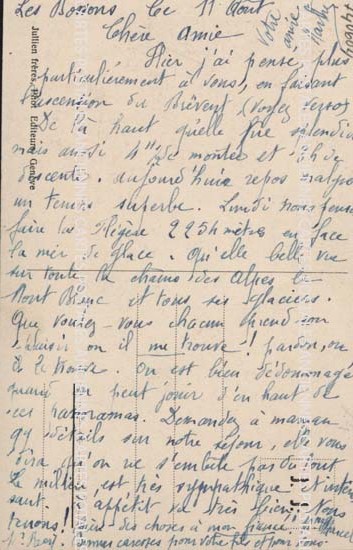 Les Bossons Ce 11 Août
Chère Amie
Votre
amie
Marthe
Hier j'ai pensé plus
particulièrement à vous, en faisant
l'ascension du Brévent (voyez verso)
De là haut qu'elle fire splendide
mais aussi 4h de montée et 3h de
descente. aujourd'hui repos malgré
un temps superbe. Lundi nous pensons
faire la Flégère 2254 mètres en face
la mer de glace. Qu'elle belle vue
sur toute la chaîne des Alpes le
Mont Blanc et tous ses glaciers.
Que voulez-vous chacun prend son
plaisir où il me trouve! pardon, ou
il le trouve. On est bien dédommagé
quand on peut jouir d'en haut de
ces panoramas. Demandez à maman
qq détails sur notre séjour, elle vous
dira qu'on ne s'embête pas du tout
le milieu est très sympathique et
surtout appétit va très bien. Nous
des choses à mon
caresses pour
Jullien frères, Phot. Editeurs, Genève